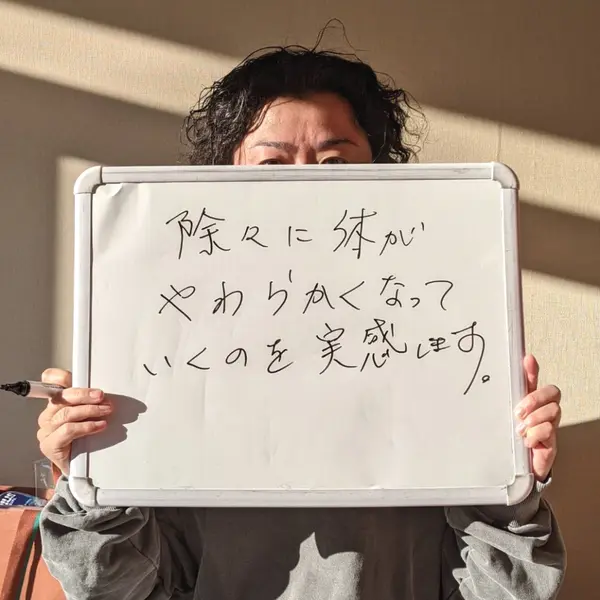 除々に体が
やわらかくなって
いくのを実感します。